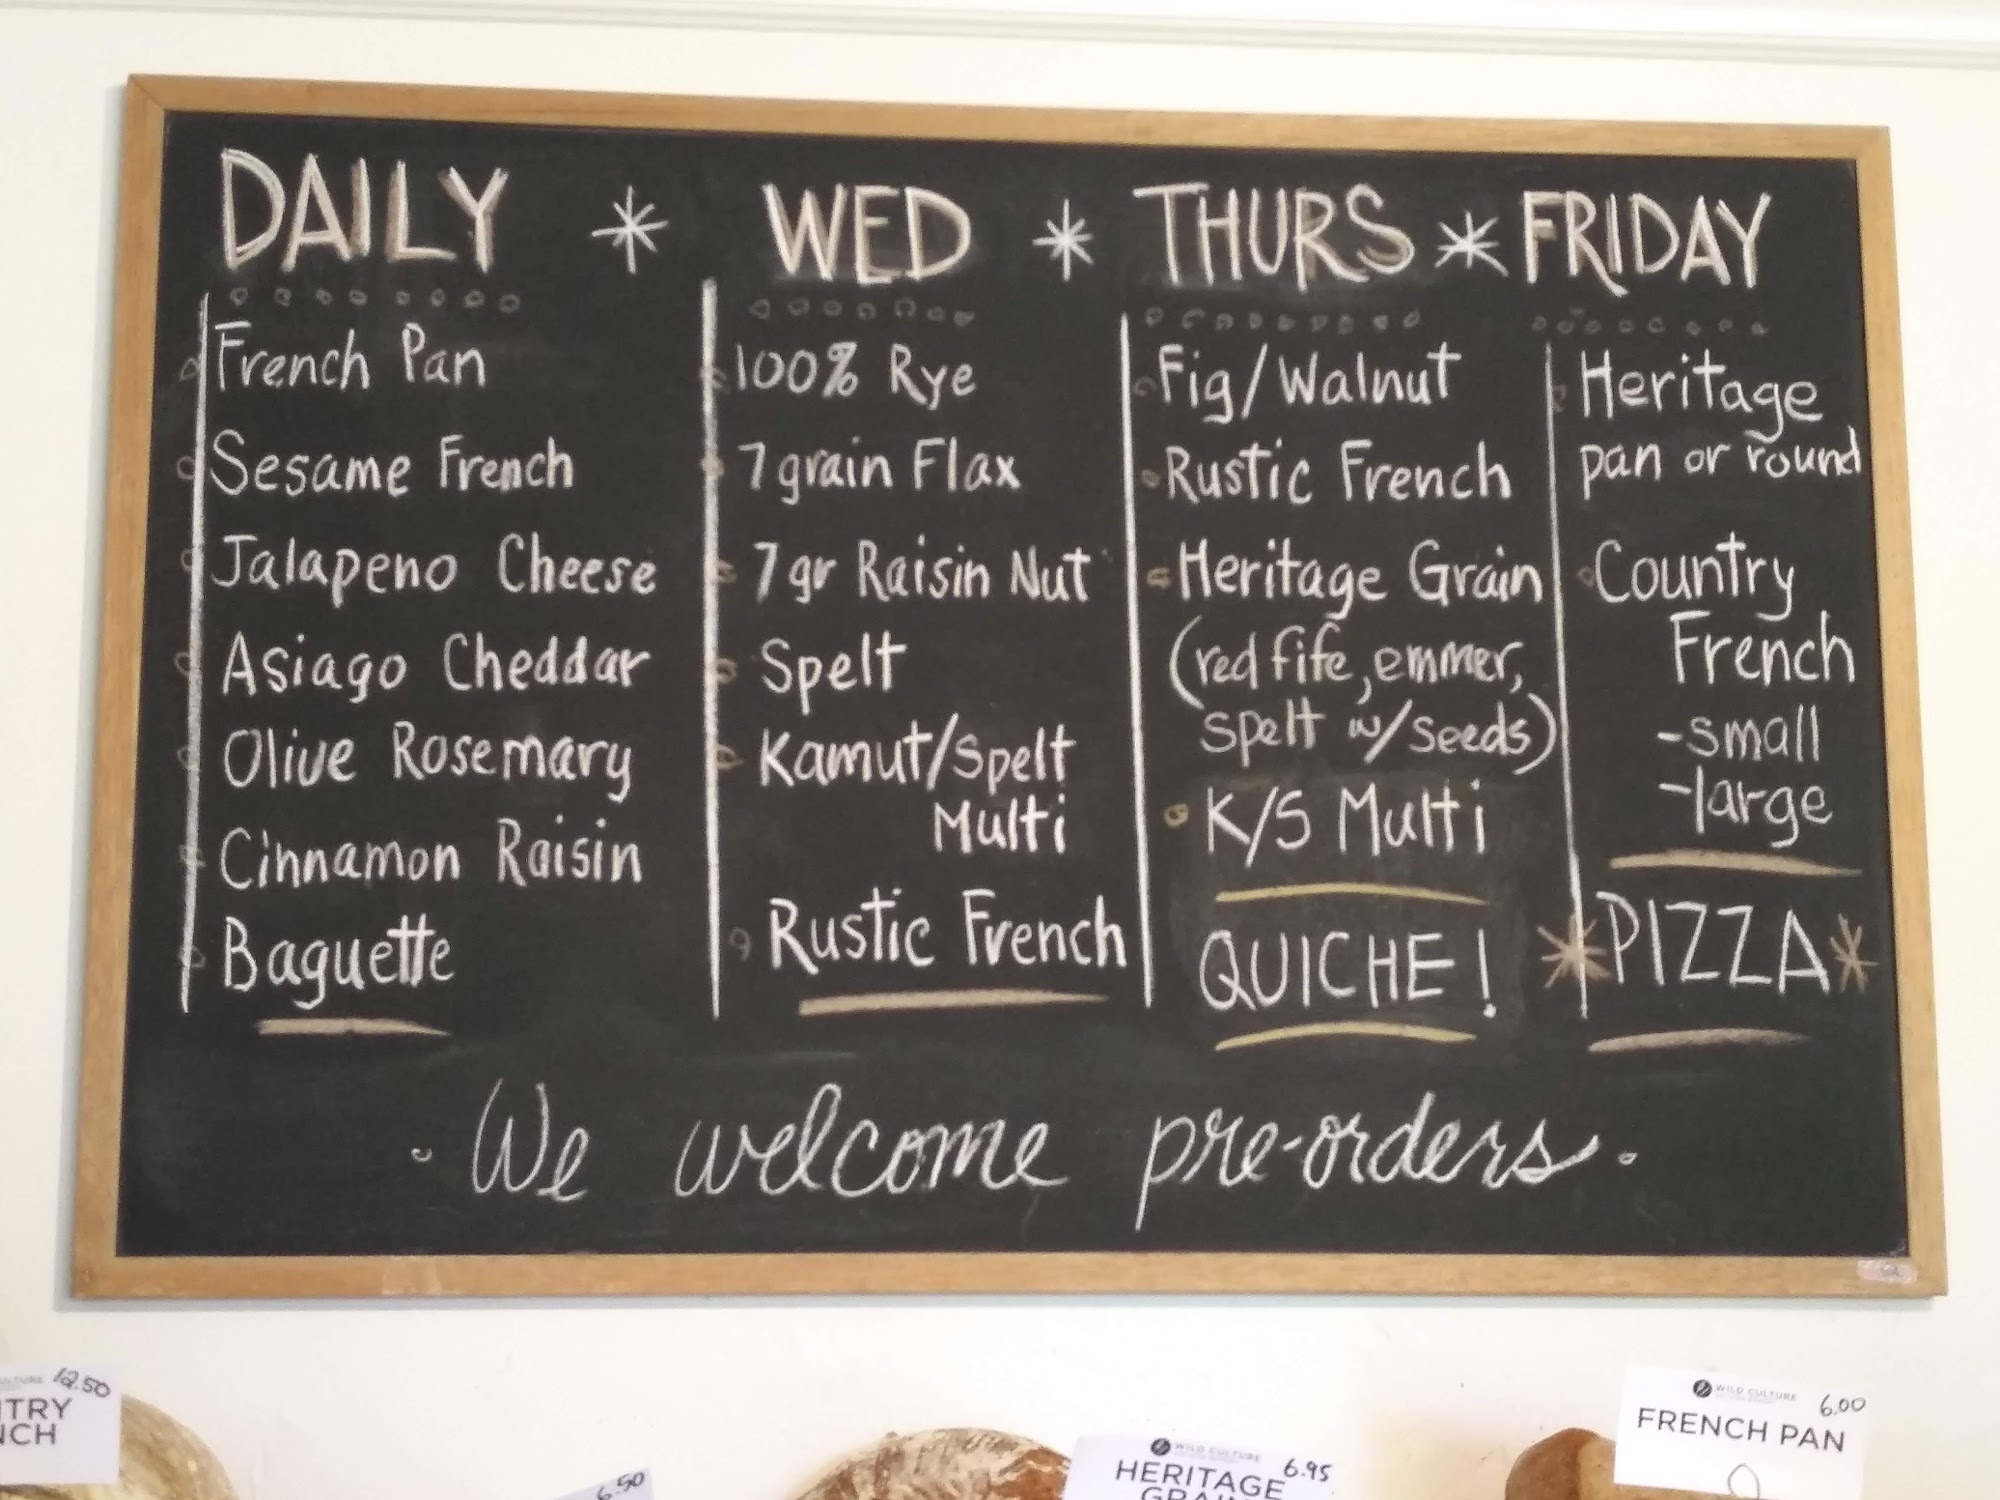 DAILY * WED * THURS * FRIDAY
French Pan
Sesame French
Jalapeno Cheese
Asiago Cheddar
Olive Rosemary
Cinnamon Raisin
Baguette
100% Rye
7 grain Flax
7 gr Raisin Nut
Spelt
Kamut/Spelt
Multi
Rustic French
Fig/Walnut
Rustic French
Heritage Grain
(red fife, emmer,
spelt w/ seeds)
K/S Multi
QUICHE!
Heritage
pan or round
Country
French
-small
-large
*PIZZA*
We welcome pre-orders.
12.50
6.50
WILD CULTURE
6.95
HERITAGE
WILD CULTURE
6.00
FRENCH PAN